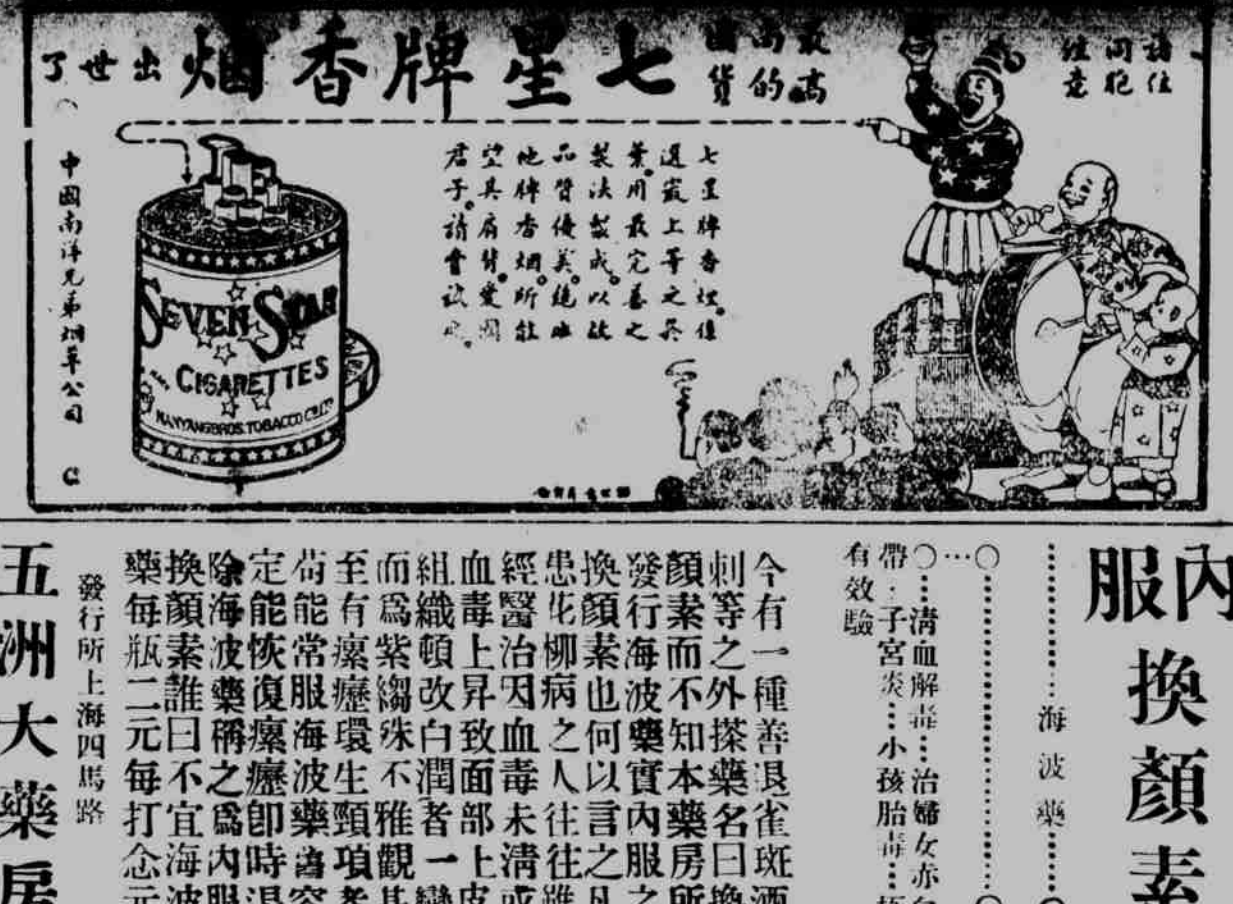 諸位
同胞
注意
最高
尚的
國貨
七星牌香烟
出世了
七星牌香烟。僅
選最上等之菸
葉。用最完善之
製法製成。以故
品質優美。絕非
他牌香烟。所能
望其肩背。愛國
君子。請嘗試之。
SEVEN STAR
CIGARETTES
NANYANG BROS. TOBACCO CO. LTD
中國南洋兄弟烟草公司
C
內服換顏素
海波藥
清血解毒…治婦女赤白
帶·子宮炎…小孩胎毒…
有效驗
今有一種善退雀斑酒
刺等之外搽藥名曰換
顏素而不知本藥房所
發行海波藥實內服之
換顏素也何以言之凡
患花柳病之人往往雖
經醫治因血毒未清或
血毒上昇致面部上皮
組織頓改白潤者一變
而爲紫縐殊不雅觀甚
至有瘰癧環生頸項者
苟能常服海波藥
定能恢復瘰癧卽時退
除海波藥稱之爲內服
換顏素誰曰不宜海波
藥每瓶二元每打念元
發行所上海四馬路
五洲大藥房